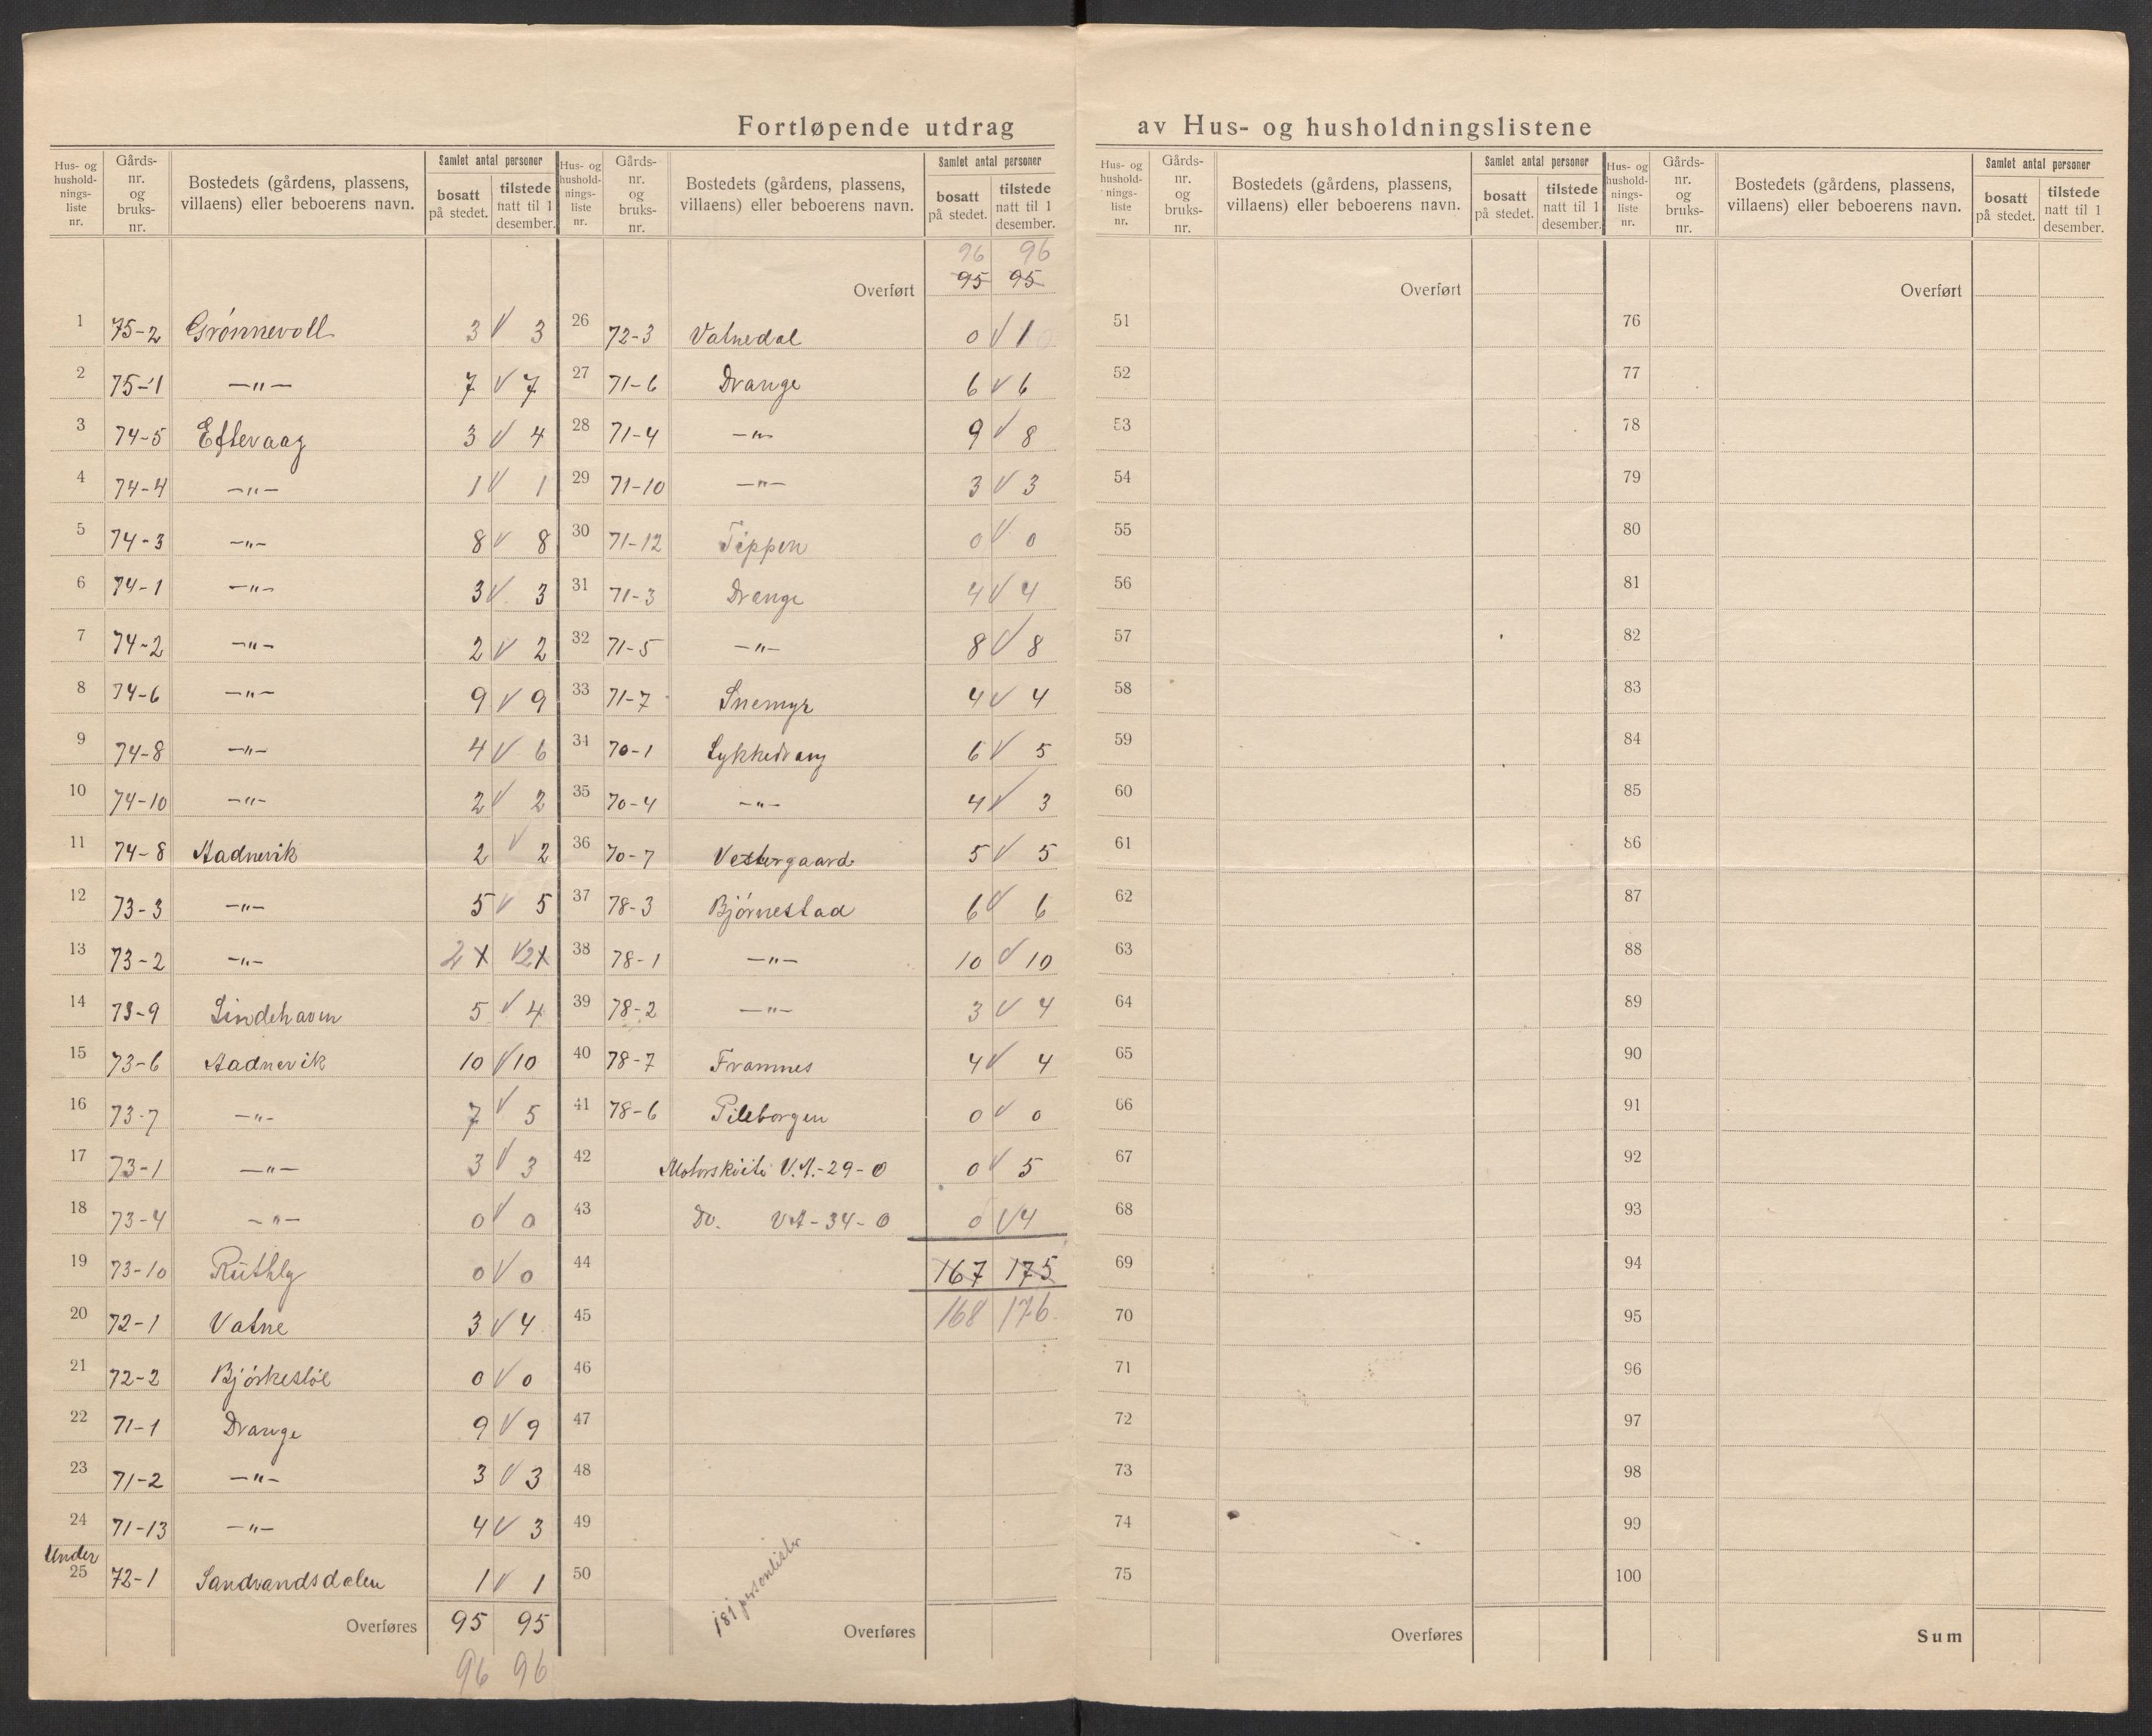 Fortløpende utdrag av Hus- og husholdningslistene
Hus- og hushold-nings-liste nr. | Gårds-nr. og bruks-nr. | Bostedets (gårdens, plassens, villaens) eller beboerens navn. | Samlet antal personer | bosatt på stedet. | tilstede natt til 1 desember.
1 75-2 Grönnevoll 3 V 3
2 75-1 —"— 7 V 7
3 74-5 Eftevaag 3 V 4
4 74-4 —"— 1 V 1
5 74-3 —"— 8 V 8
6 74-1 —"— 3 V 3
7 74-2 —"— 2 V 2
8 74-6 —"— 9 V 9
9 74-8 —"— 4 V 6
10 74-10 —"— 2 V 2
11 74-8 Aadnevik 2 V 2
12 73-3 —"— 5 V 5
13 73-2 —"— 2 V 2
14 73-9 Lindehaven 5 V 4
15 73-6 Aadnevik 10 V 10
16 73-7 —"— 7 V 5
17 73-1 —"— 3 V 3
18 73-4 —"— 0 V 0
19 73-10 0 V 0
20 72-1 Vatne 3 V 4
21 72-2 0 V 0
22 71-1 Drange 9 V 9
23 71-2 —"— 3 V 3
24 71-13 —"— 4 V 3
Under
25 72-1 Sandvandsdalen 1 V 1
Overføres 95 95
96 96
Hus- og hushold-nings-liste nr. | Gårds-nr. og bruks-nr. | Bostedets (gårdens, plassens, villaens) eller beboerens navn. | Samlet antal personer | bosatt på stedet. | tilstede natt til 1 desember.
96 96
Overført 95 95
26 72-3 Vatnedal 0 V 1 0
27 71-6 Drange 6 V 6
28 71-4 —"— 9 V 8
29 71-10 —"— 3 V 3
30 71-12 Tippen 0 V 0
31 71-3 Drange 4 V 4
32 71-5 —"— 8 V 8
33 71-7 Snemyr 4 V 4
34 70-1 Lykkedrang 6 V 5
35 70-4 —"— 4 V 3
36 70-7 Vestergaard 5 V 5
37 78-3 Björnestad 6 V 6
38 78-1 —"— 10 V 10
39 78-2 —"— 3 V 4
40 78-7 Framnes 4 V 4
41 78-6 Pileborgen 0 V 0
42 Motorsköite V.A.-29-0 0 V 5
43 Do. V.A-34-0 0 V 4
44 167 175
45 168 176
46
47
48
49
50
181 personlister
Overføres
Hus- og hushold-nings-liste nr. | Gårds-nr. og bruks-nr. | Bostedets (gårdens, plassens, villaens) eller beboerens navn. | Samlet antal personer | bosatt på stedet. | tilstede natt til 1 desember.
Overført
51
52
53
54
55
56
57
58
59
60
61
62
63
64
65
66
67
68
69
70
71
72
73
74
75
Overføres
Hus- og hushold-nings-liste nr. | Gårds-nr. og bruks-nr. | Bostedets (gårdens, plassens, villaens) eller beboerens navn. | Samlet antal personer | bosatt på stedet. | tilstede natt til 1 desember.
Overført
76
77
78
79
80
81
82
83
84
85
86
87
88
89
90
91
92
93
94
95
96
97
98
99
100
Sum